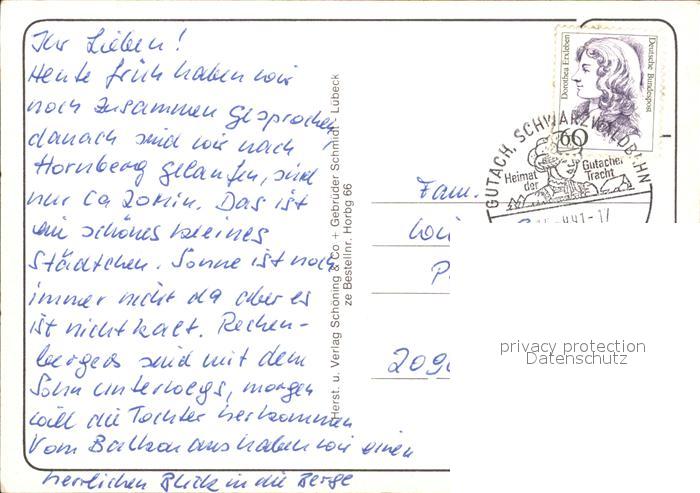 Ihr Lieben!
Heute früh haben wir
noch zusammen gesprochen,
danach sind wir nach
Hornberg gelaufen, sind
nur ca 20 Min. Das ist
ein schönes kleines
Städtchen. Sonne ist noch
immer nicht da aber es
ist nicht kalt. Rechen-
bergers sind mit dem
Sohn unterwegs, morgen
will die Tochter herkommen
Vom Balkon aus haben wir einen
herrlichen Blick in die Berge
Herst. u. Verlag Schöning & Co + Gebrüder Schmidt - Lübeck
ze Bestellnr. Horbg 66
Dorothea Erxleben
Deutsche Bundespost
60
GUTACH, SCHWARZWALDBAHN
Heimat der
Gutacher Tracht
Fam.
P
2090
privacy protection
Datenschutz